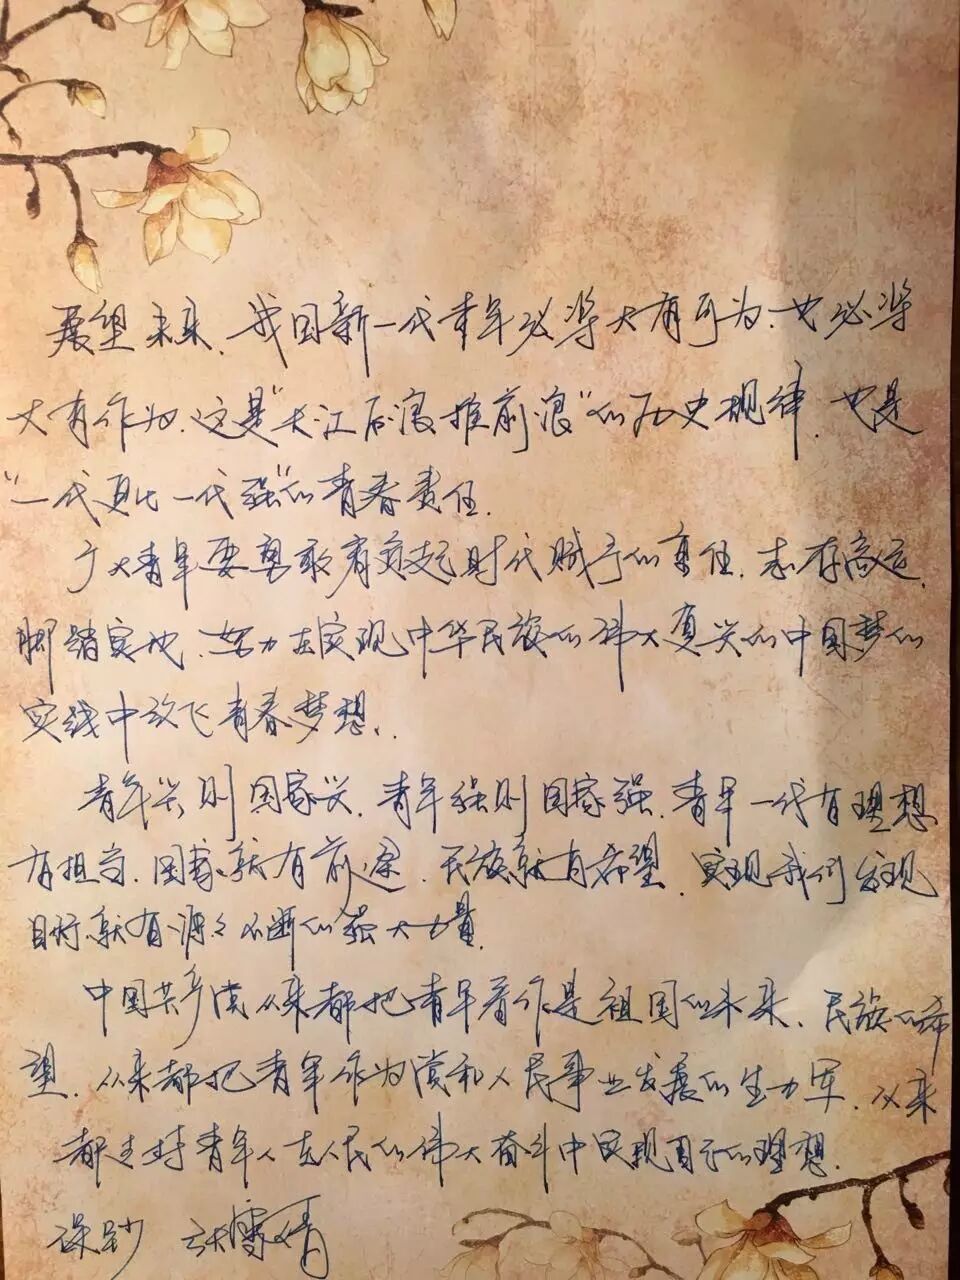 展望未来,我国新一代青年必将大有可为,也必将
大有作为.这是"长江后浪推前浪"的历史规律,也是
"一代更比一代强"的青春责任.
广大青年要勇敢肩负起时代赋予的责任,志存高远,
脚踏实地,努力在实现中华民族的伟大复兴的中国梦的
实践中放飞青春梦想.
青年兴则国家兴,青年强则国家强,青年一代有理想
有担当,国家就有前途,民族就有希望,实现我们发现
目标就有源々不断的强大力量.
中国共产党从来都把青年看作是祖国的未来、民族的希
望,从来都把青年作为党和人民事业发展的生力军,从来
都支持青年人在人民的伟大奋斗中实现自己的理想.
张雪倩